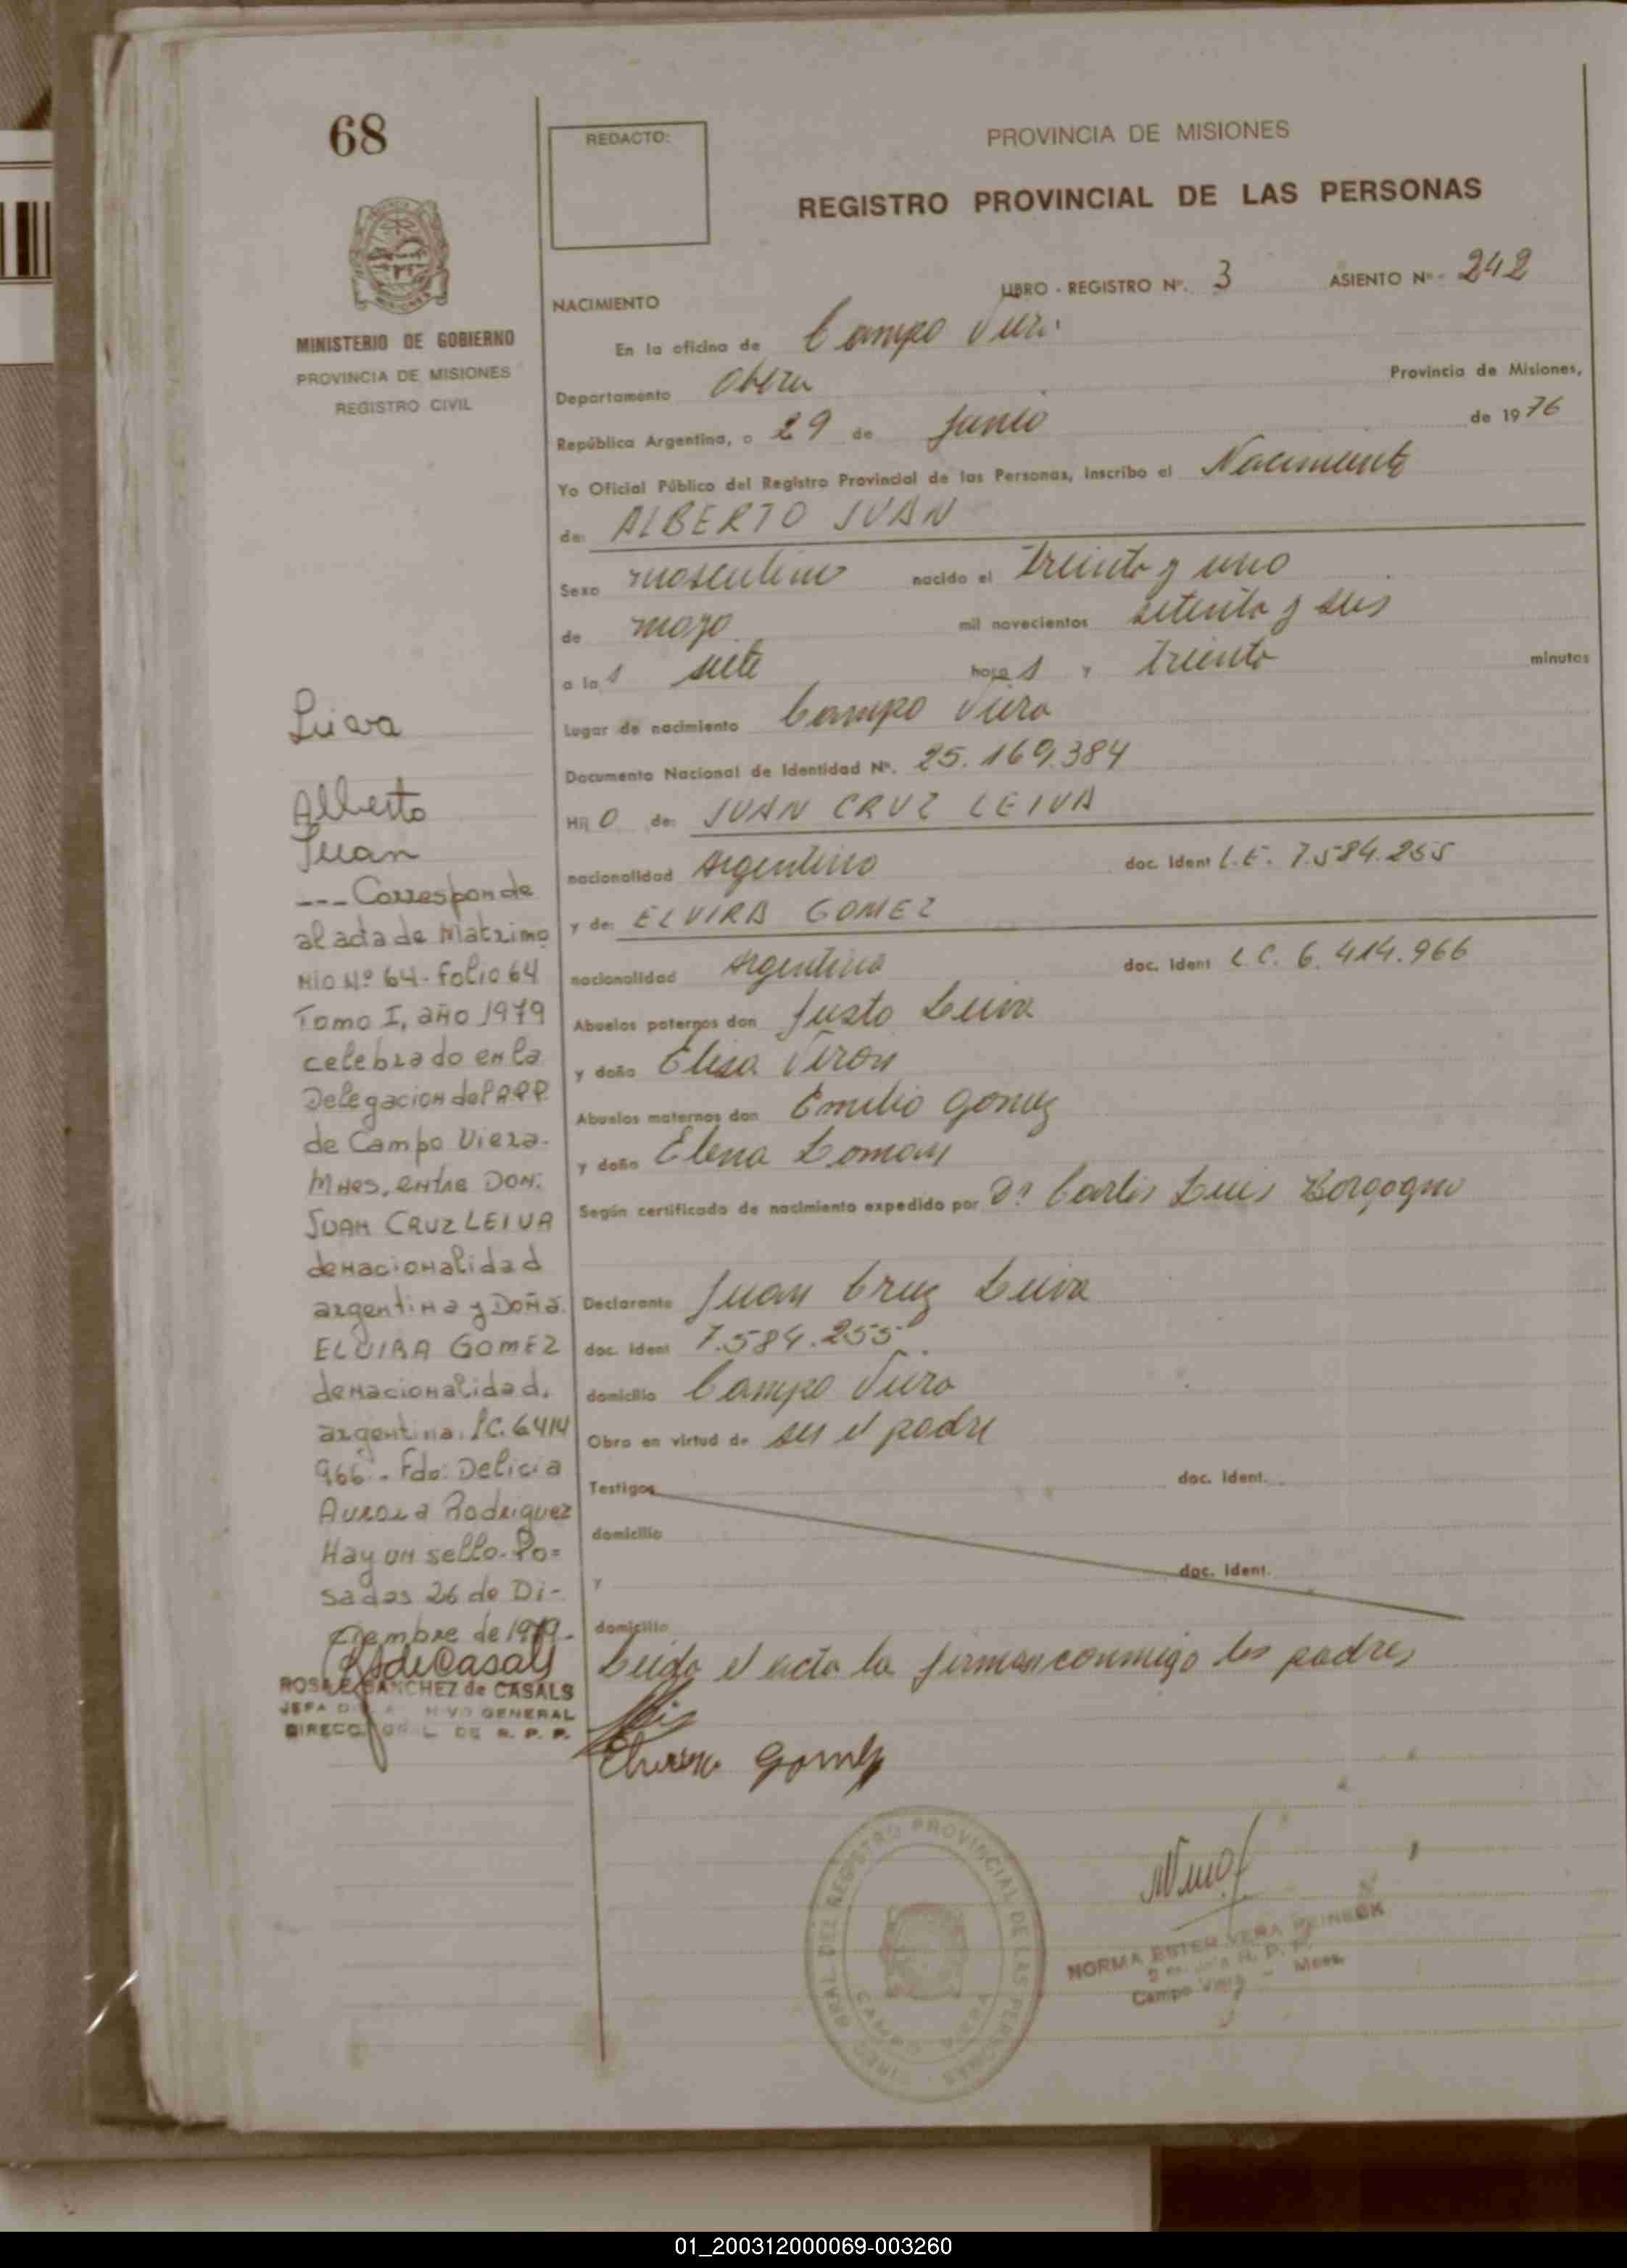 68
REDACTO:
PROVINCIA DE MISIONES
REGISTRO PROVINCIAL DE LAS PERSONAS
MINISTERIO DE GOBIERNO
PROVINCIA DE MISIONES
REGISTRO CIVIL
LIBRO - REGISTRO Nº. 3 ASIENTO Nº- 242
NACIMIENTO
En la oficina de Campo Viera
Departamento Obera Provincia de Misiones,
República Argentina, a 29 de Junio de 1976
Yo Oficial Público del Registro Provincial de las Personas, inscribo el Nacimiento
de: ALBERTO JUAN
Sexo masculino nacido el treinta y uno
de mayo mil novecientos setenta y seis
a las siete horas y treinta minutos
Lugar de nacimiento Campo Viera
Documento Nacional de Identidad Nº. 25.169.384
Hijo de: JUAN CRUZ LEIVA
nacionalidad Argentino doc. Ident L.E. 7.584.255
y de: ELVIRA GOMEZ
nacionalidad Argentina doc. Ident L C. 6.414.966
Abuelos paternos don Justo Leiva
y doña Elisa Viron
Abuelos maternos don Emilio Gomez
y doña Elena Loman
Según certificado de nacimiento expedido por Dr Carlos Luis Borgogno
Declarante Juan Cruz Leiva
doc. Ident 7.584.255
domicilio Campo Viera
Obra en virtud de ser el padre
Testigos doc. Ident.
domicilio
y doc. Ident.
domicilio
Leida el acta la firman conmigo los padres
Elvira Gomez
Leiva
Alberto
Juan
--- Corresponde
al acta de Matrimo
nio Nº 64 - Folio 64
Tomo I, año 1979
celebrado en la
Delegacion del RPP
de Campo Viera.
Mnes, entre DON:
JUAN CRUZ LEIVA
de nacionalidad
argentina y Doña
ELVIRA GOMEZ
de nacionalidad.
argentina. LC. 6414
966 - Fdo: Delicia
Aurora Rodriguez
Hay un sello. Po=
sadas 26 de Di-
ciembre de 1979.
ROSA E. SANCHEZ de CASALS
JEFA GENERAL
DE R. P. P.
REGISTRO PROVINCIAL DE LAS PERSONAS
CAMPO VIERA
NORMA ESTER VERA REINECK
Campo Viera - Mnes.
01_200312000069-003260